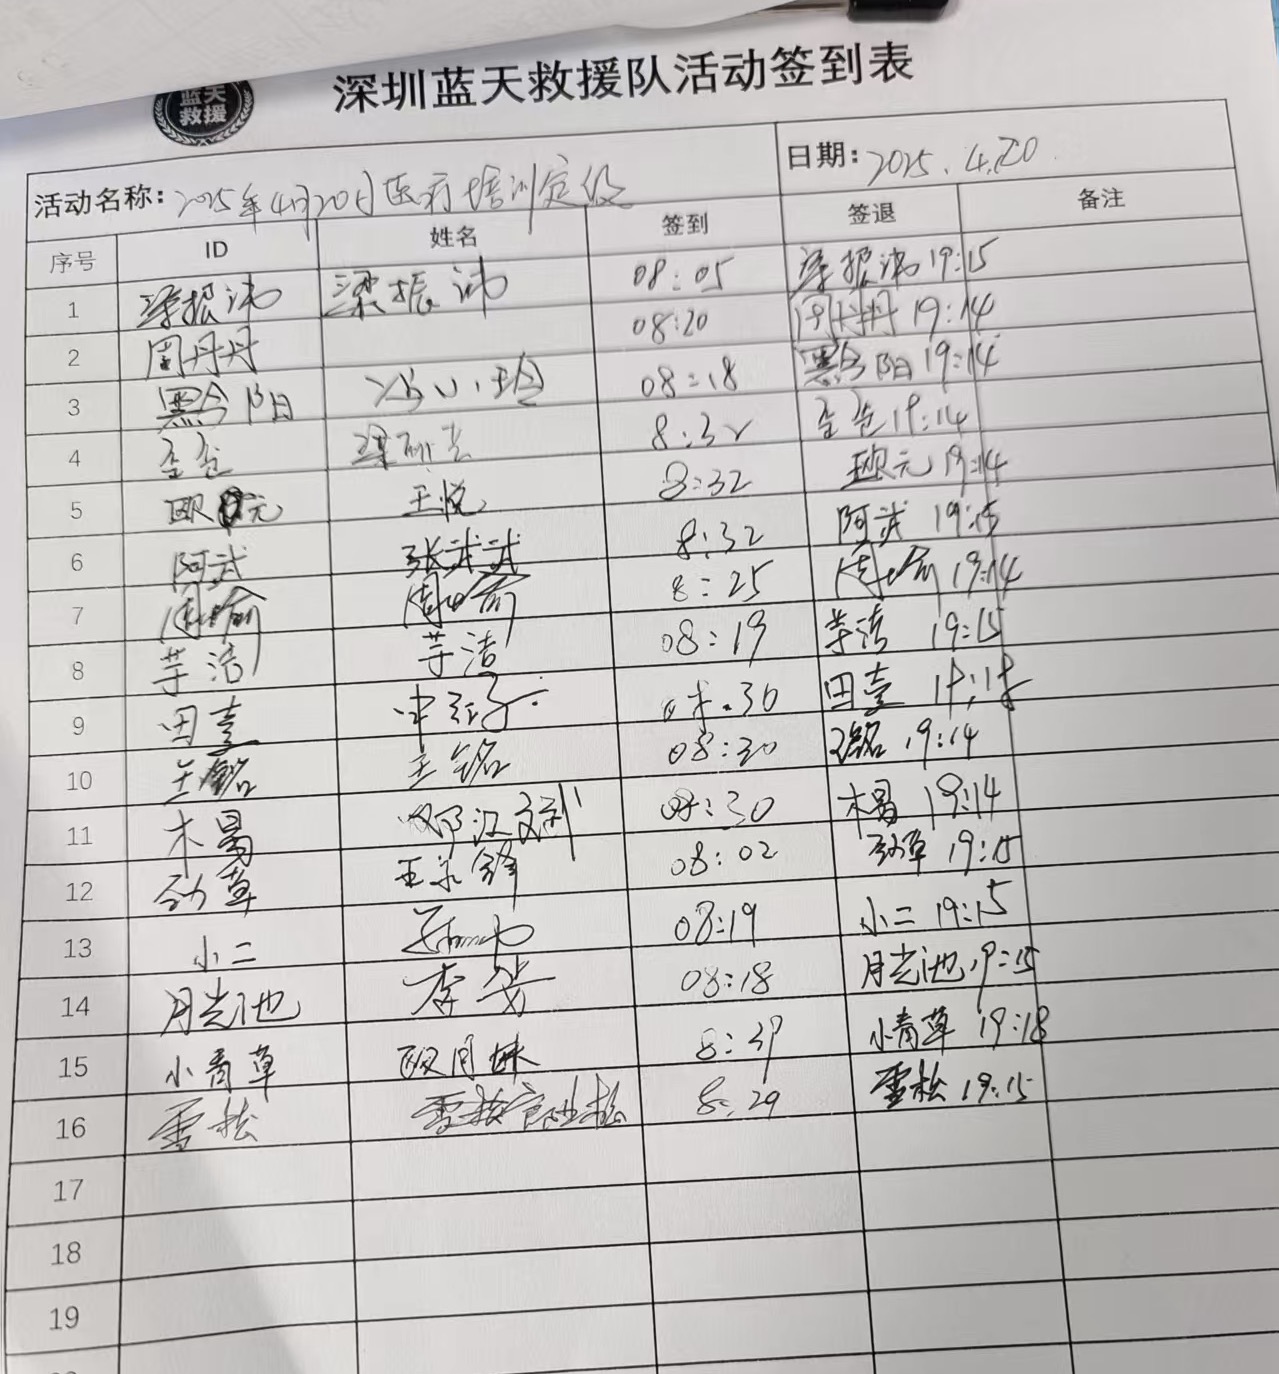 蓝天
救援
深圳蓝天救援队活动签到表
活动名称: 2025年4月20日医疗培训定级 日期: 2025.4.20
序号 ID 姓名 签到 签退 备注
1 梁振沛 梁振沛 08:05 梁振沛 19:15
2 周丹丹 08:20 周丹丹 19:14
3 黔今阳 冯小玲 08:18 黔今阳 19:14
4 8:32 19:14
5 欧元 王悦 8:32 欧元 19:14
6 阿武 张武武 8:32 阿武 19:15
7 周喻 周喻 8:25 周喻 19:14
8 芋洁 芋洁 08:19 芋洁 19:15
9 田壹 08:30 田壹 19:18
10 王铭 王铭 08:30 王铭 19:14
11 木易 08:30 木易 19:14
12 劲草 08:02 劲草 19:15
13 小二 08:19 小二 19:15
14 月光池 李安 08:18 月光池 19:15
15 小青草 欧月妹 8:39 小青草 19:18
16 雪松 8:29 雪松 19:15
17
18
19